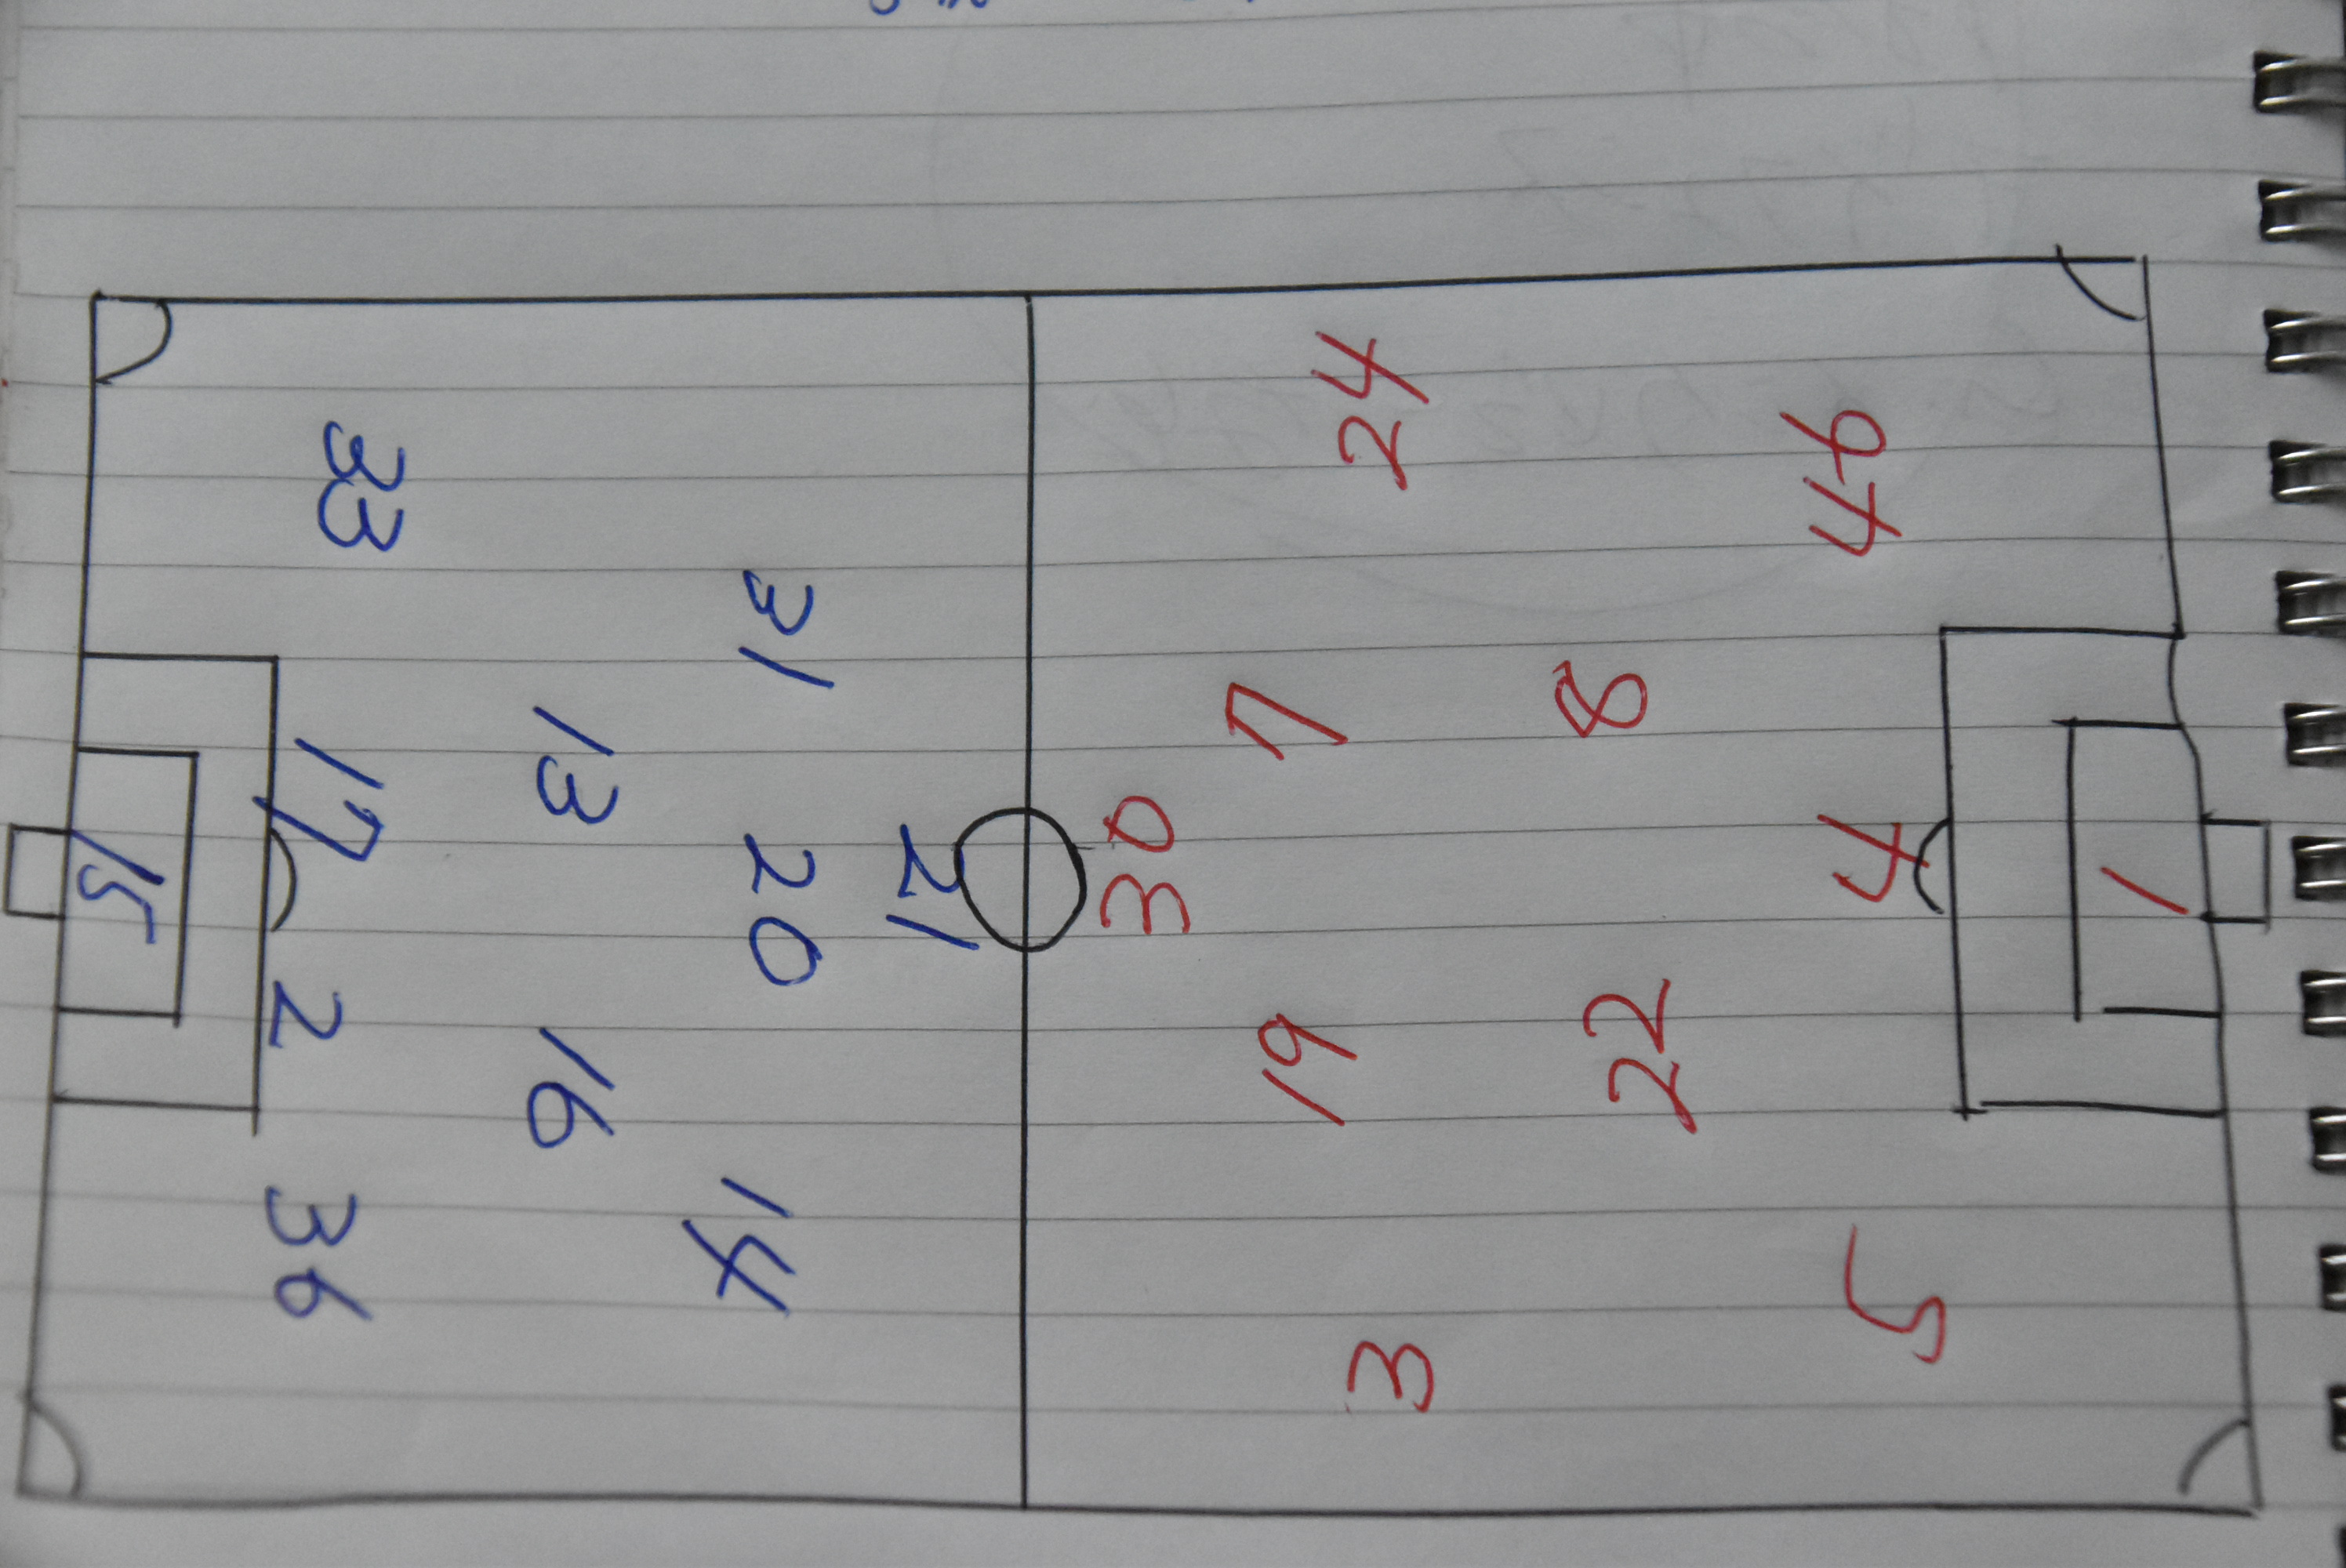 33
31
13
17
15
20
21
2
16
36
14
24
46
7
8
30
4
1
19
22
5
3